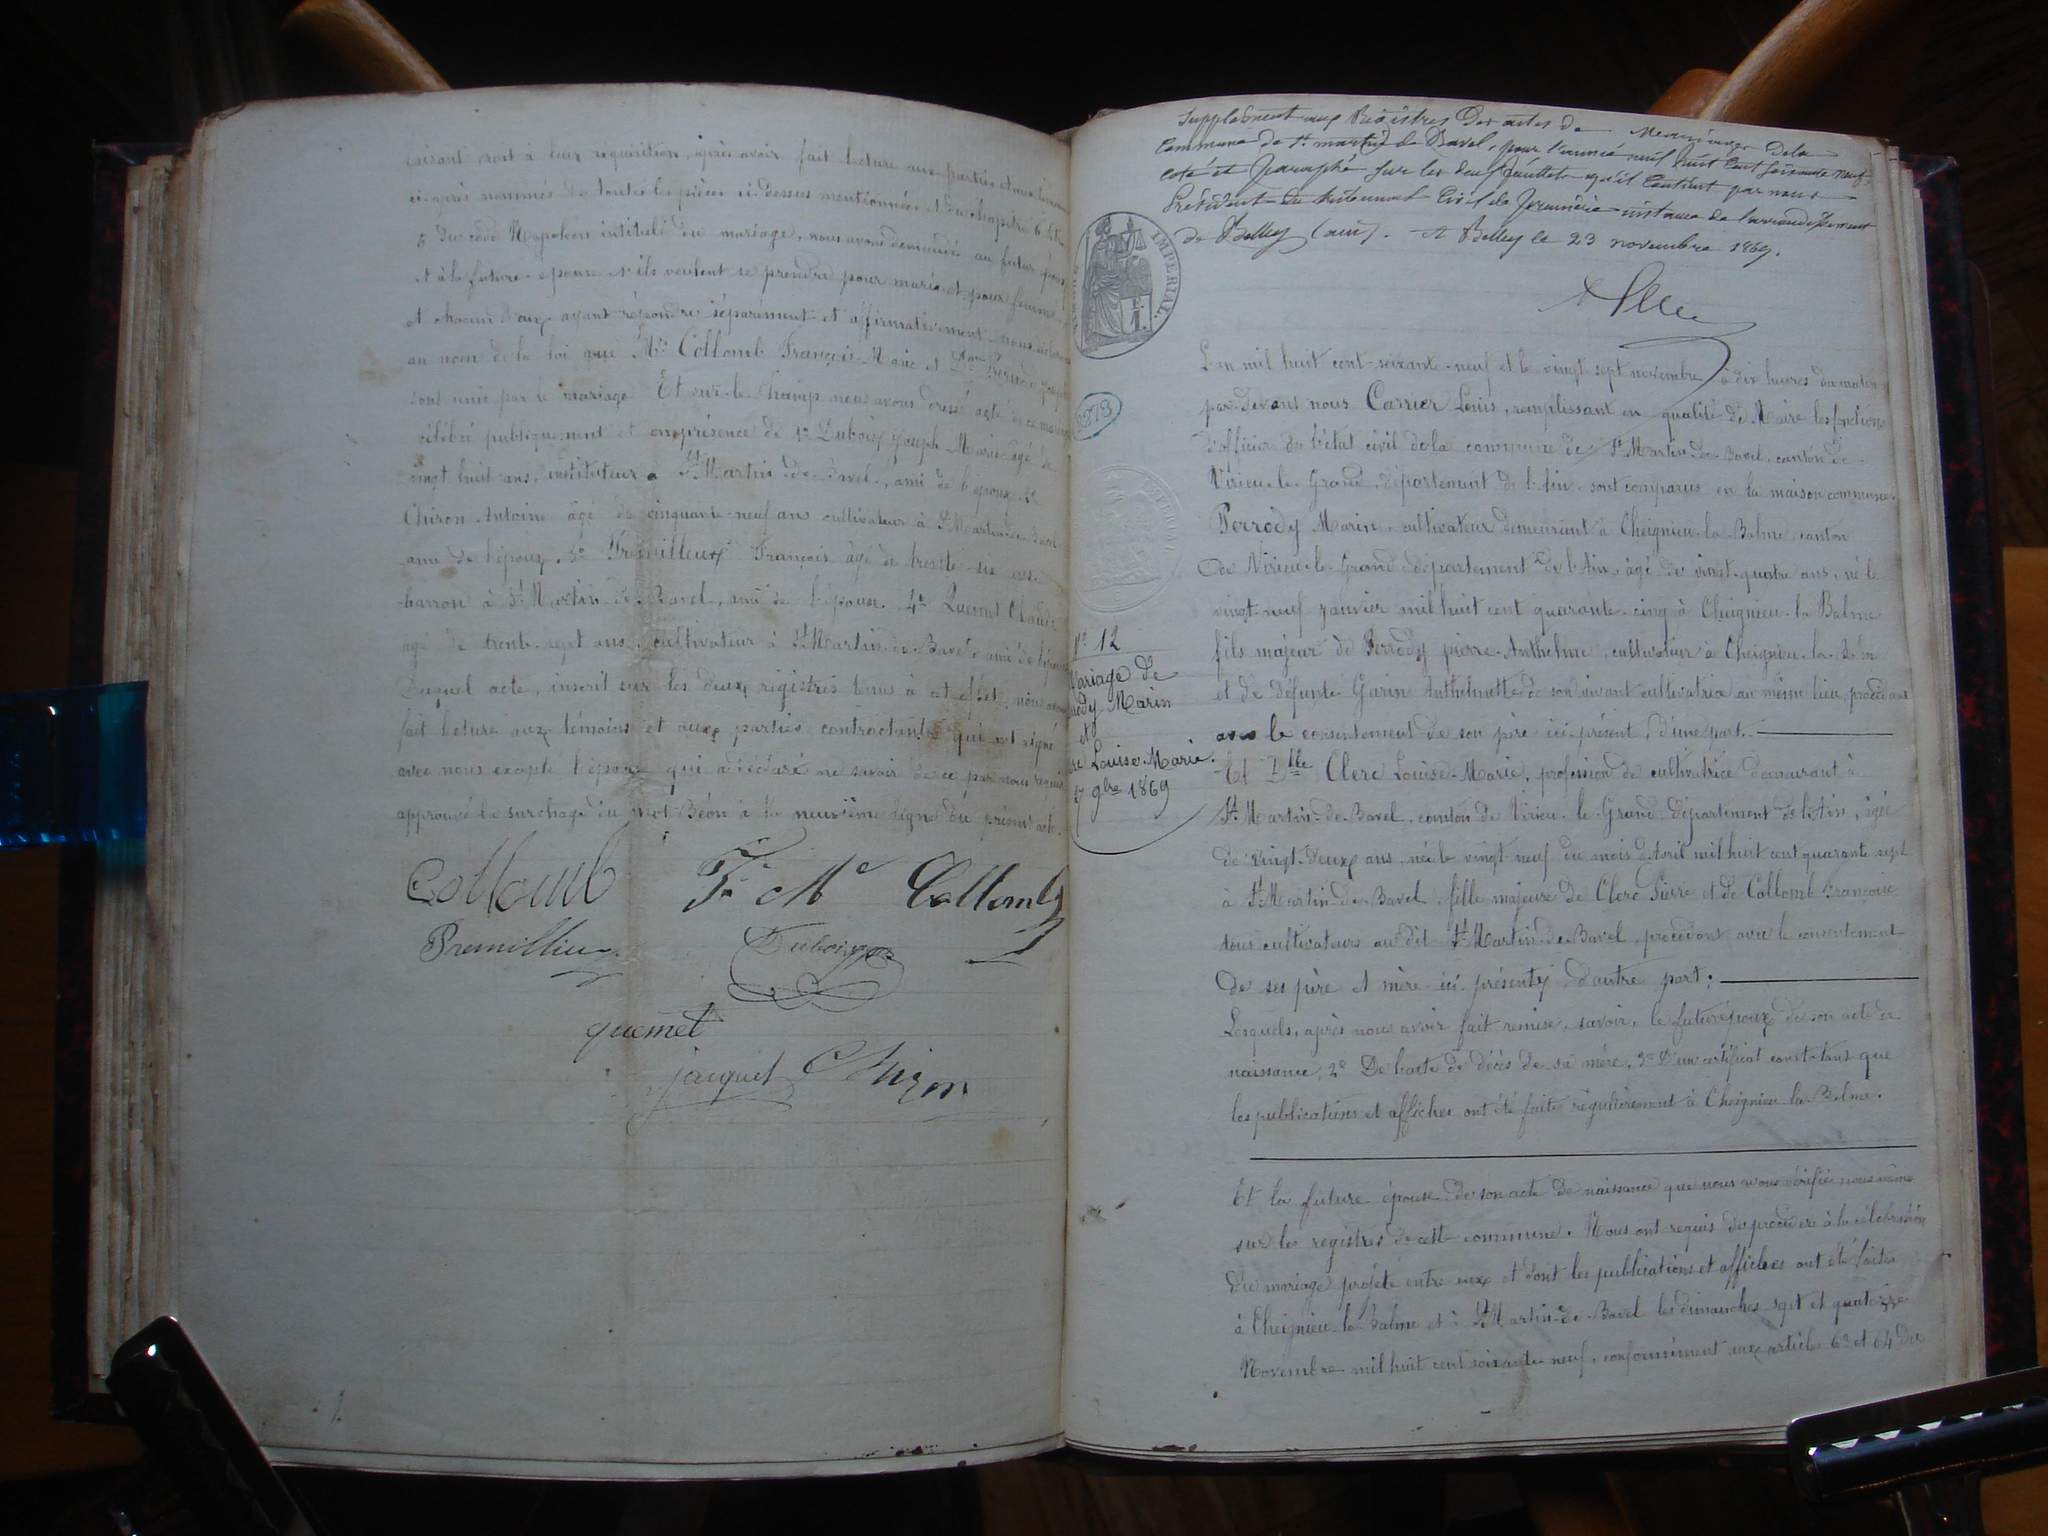 faisant droit à leur requisition, après avoir fait lecture aux parties et aux témoins
ci-après nommés de toutes les pièces ci-dessus mentionnées et du chapitre 6 titre
5 du code Napoléon intitulé du mariage, nous avons demandé au futur époux
et à la future épouse s'ils veulent se prendre pour mari et pour femme
et chacun d'eux ayant répondu séparément et affirmativement nous déclarons
au nom de la loi que Mr Collomb François-Marie et
sont unis par le mariage. Et sur-le-champ nous avons dressé acte de ce mariage
célébré publiquement et en présence de 1° Dubois Joseph Marie âgé de
vingt huit ans, instituteur à St Martin-de-Bavel, ami de l'époux, 2°
Chiron Antoine âgé de cinquante-neuf ans cultivateur à St Martin-de-Bavel
ami de l'époux, 3° Premillieux François âgé de trente-six ans
charron à St Martin-de-Bavel, ami de l'épouse. 4° Quemet Claude
âgé de trente-sept ans, cultivateur à St Martin-de-Bavel, ami de l'épouse
Duquel acte, inscrit sur les deux registres tenus à cet effet, nous avons
fait lecture aux témoins et aux parties contractantes qui ont signé
avec nous excepté l'épouse qui a déclaré ne savoir de ce par nous requis
approuvé la surchage du mot Béon à la neuvième ligne du présent acte.
Collomb Fs Me Collomb
Premillieux Dubois
quemet
jacquet Chiron
Supplément aux Registres des actes de Mariages de la
Commune de St martin de Bavel, pour l'année mil huit cent soixante neuf,
coté et paraphé sur les deux feuillets qu'il contient par nous
Président du tribunal Civil de première instance de l'arrondissement
de Belley (ain). A Belley le 23 novembre 1869.
TIMBRE IMPERIAL.
1.
L'an mil huit cent-soixante-neuf et le vingt-sept novembre à dix heures du matin
par-devant nous Carrier Louis, remplissant en qualité de Maire les fonctions
d'officier de l'état civil de la commune de St Martin-de-Bavel, canton de
Virieu-le-Grand, département de l'Ain sont comparus en la maison commune
Perrody Marin, cultivateur demeurant à Cheignieu-la-Balme, canton
de Virieu-le-Grand département de l'Ain, âgé de vingt-quatre ans, né le
vingt-neuf janvier mil huit cent quarante-cinq à Cheignieu-la-Balme
fils majeur de Perrody pierre-Anthelme, cultivateur à Cheignieu-la-Balme
et de défunte Garin Anthelmette de son vivant cultivatrice au même lieu, procédant
avec le consentement de son père ici-présent, d'une part.
Et Dlle Clerc Louise-Marie, profession de cultivatrice demeurant à
St Martin-de-Bavel, canton de Virieu-le-Grand département de l'Ain, âgée
de vingt-deux ans, née le vingt neuf du mois d'Avril mil huit cent quarante sept
à St Martin-de-Bavel, fille majeure de Clerc Pierre et de Collomb Françoise
tous cultivateurs au dit St Martin-de-Bavel, procédant avec le consentement
de ses père et mère ici-présents, d'autre part;
Lesquels, après nous avoir fait remise, savoir, le futur époux de son acte de
naissance, 2° De l'acte de décès de sa mère, 3° d'un certificat constatant que
les publications et affiches ont été faite régulièrement à Cheignieu-la-Balme.
Et la future épouse de son acte de naissance que nous avons vérifié nous même
sur les registres de cette commune. Nous ont requis de procéder à la célébration
du mariage projeté entre eux et dont les publications et affiches ont été faites
à Cheignieu-la-Balme et à St Martin-de-Bavel les dimanches sept et quatorze
Novembre mil huit cent soixante neuf, conformément aux articles 63 et 64 du
N° 12
Mariage de
Marin
et
Louise-Marie.
27 9bre 1869